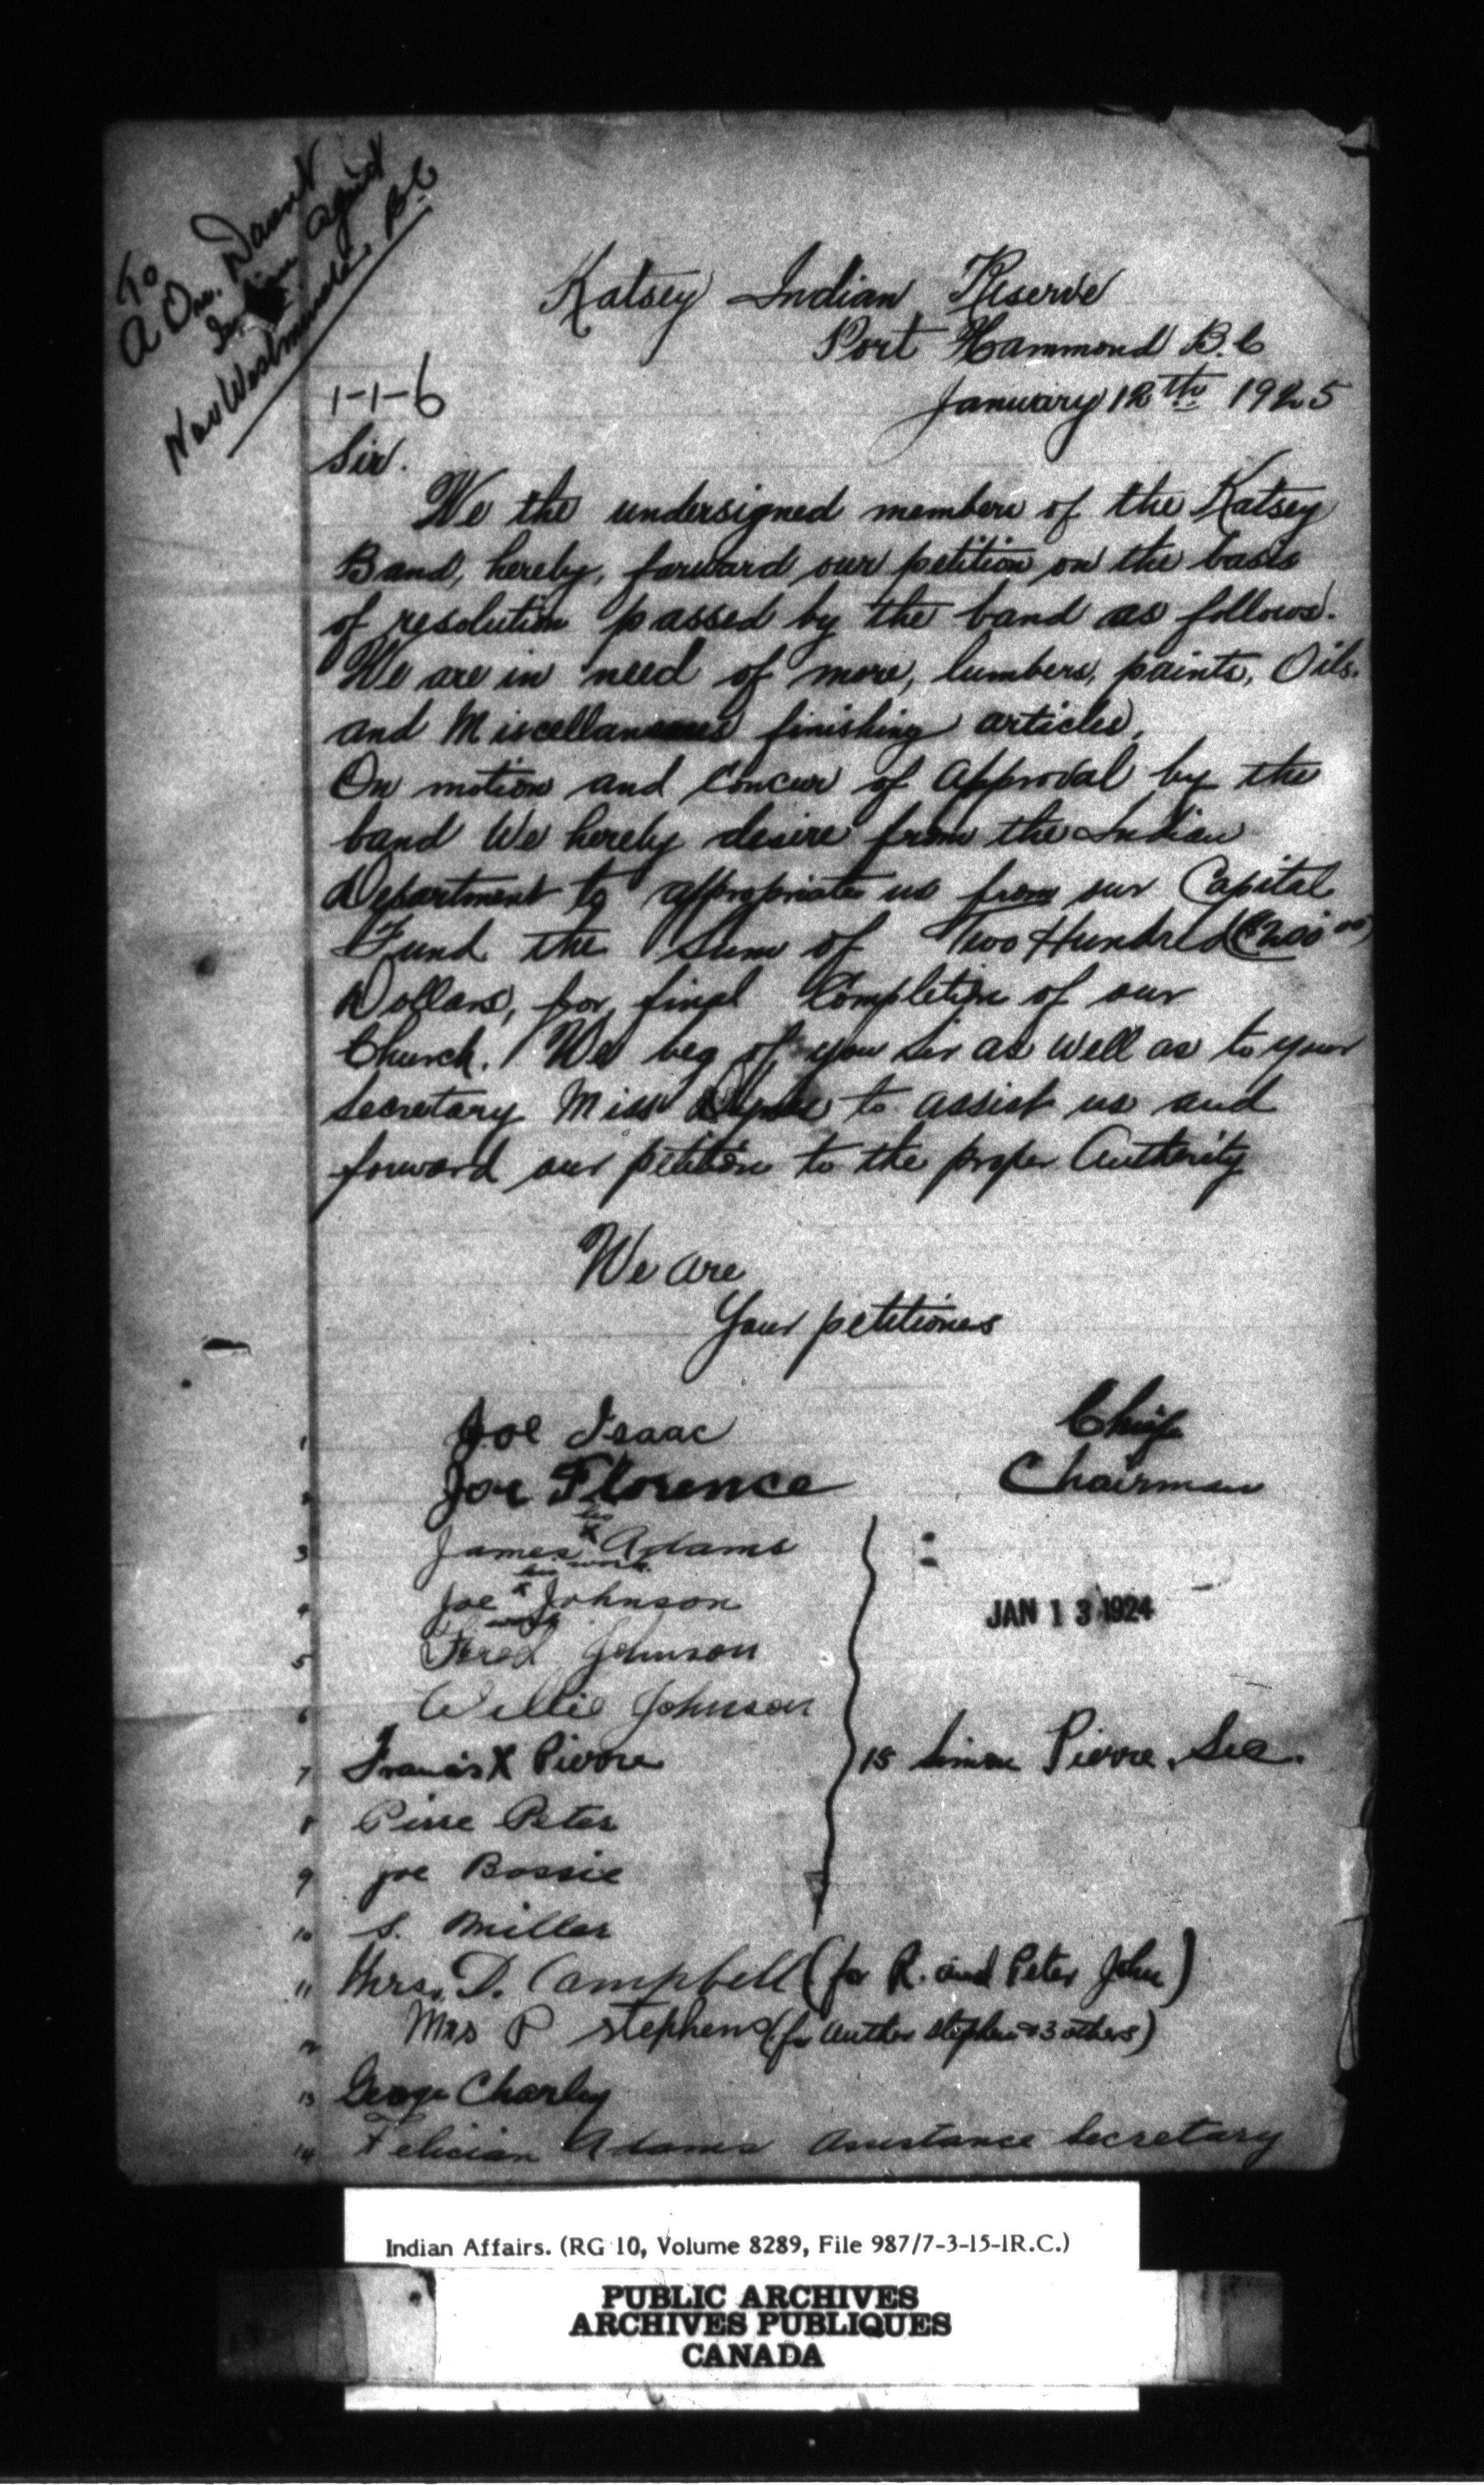 To
A One. Daunt
Indian Agent
New Westminster, B.C
Katsey Indian Reserve
Port Hammond B.C
January 12th 1925
1-1-6
Sir.
We the undersigned members of the Katsey
Band, hereby, forward our petition on the basis
of resolution passed by the band as follows.
We are in need of more, lumbers, paints, Oils.
and Miscellaneous finishing articles,
On motion and Concur of Approval by the
band We hereby desire from the Indian
Department to appropriate us from our Capital
Fund the Sum of Two Hundred ($200.00)
Dollars, for final Completion of our
Church. We beg of you Sir as well as to your
Secretary Miss to assist us and
forward our petition to the proper Authority
We are
Your petitioners
1 Joe Isaac Chief
2 Joe Florence Chairman
his
3 James X Adams
mark
his
4 Joe X Johnson
mark
JAN 13 1924
5 Fred Johnson
6 Willie Johnson
7 Francis X Pierre 15 Simon Pierre, Sec.
8 Pirre Peter
9 joe Bossie
10 S. Miller
11 Mrs. D. Campbell (for R. and Peter John)
12 Mrs P Stephens (for Author Stephen & 3 others)
13 George Charley
14 Felician Adams Assistance Secretary
Indian Affairs. (RG 10, Volume 8289, File 987/7-3-15-1R.C.)
PUBLIC ARCHIVES
ARCHIVES PUBLIQUES
CANADA